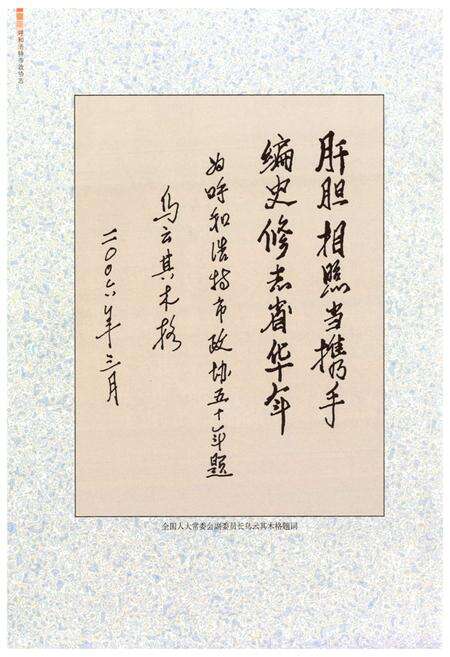 呼和浩特市政协志
肝胆相照当携手
编史修志省华年
为呼和浩特市政协五十年题
乌云其木格
二〇〇六年三月
全国人大常委会副委员长乌云其木格题词